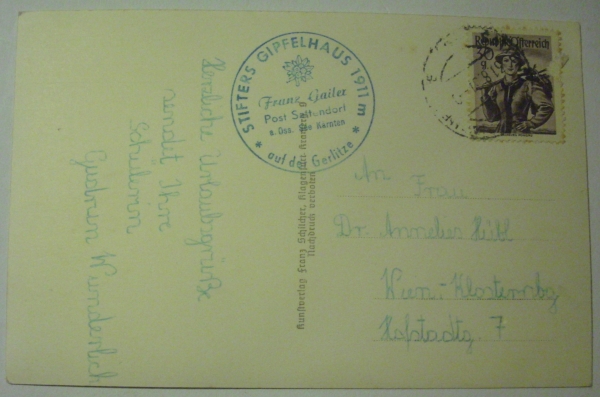 Herzliche Urlaubsgrüße
sendet Ihre
Schülerin
Gudrun Wunderlich
STIFTERS GIPFELHAUS 1911 m
Franz Gailer
Post Sattendorf
a. Oss. See Kärnten
* auf der Gerlitze *
Kunstverlag Franz Schilcher, Klagenfurt,
Nachdruck verboten
Republik Österreich
An Frau
Dr. Annelies Hübl
Wien-Klosternbg
Hofstadtg. 7